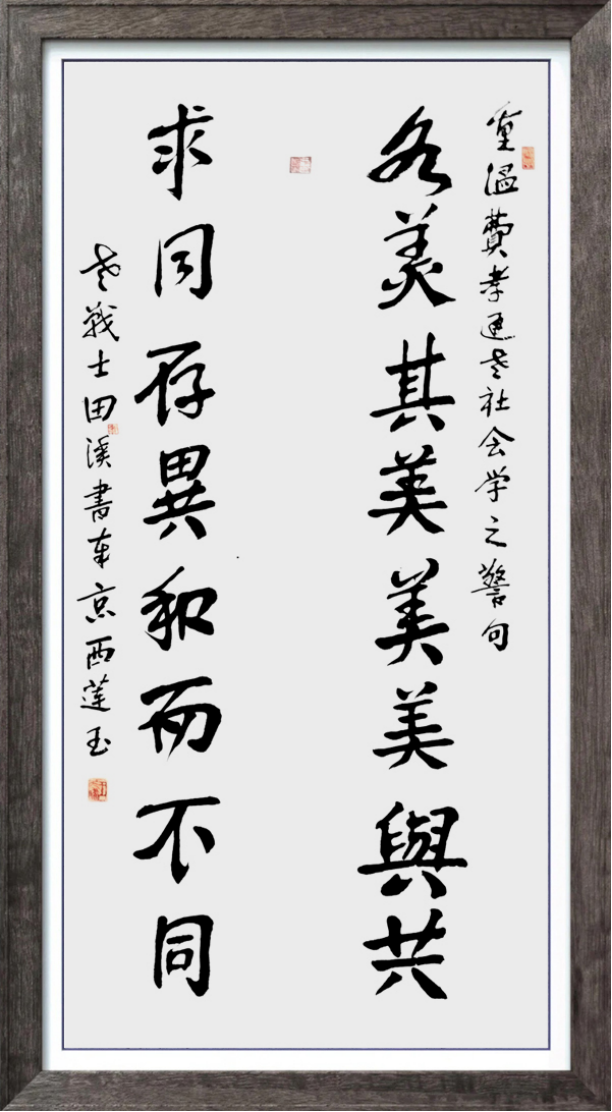 重溫費孝通老社会学之警句
各美其美美美與共
求同存異和而不同
老戰士田溪書京西蓮玉